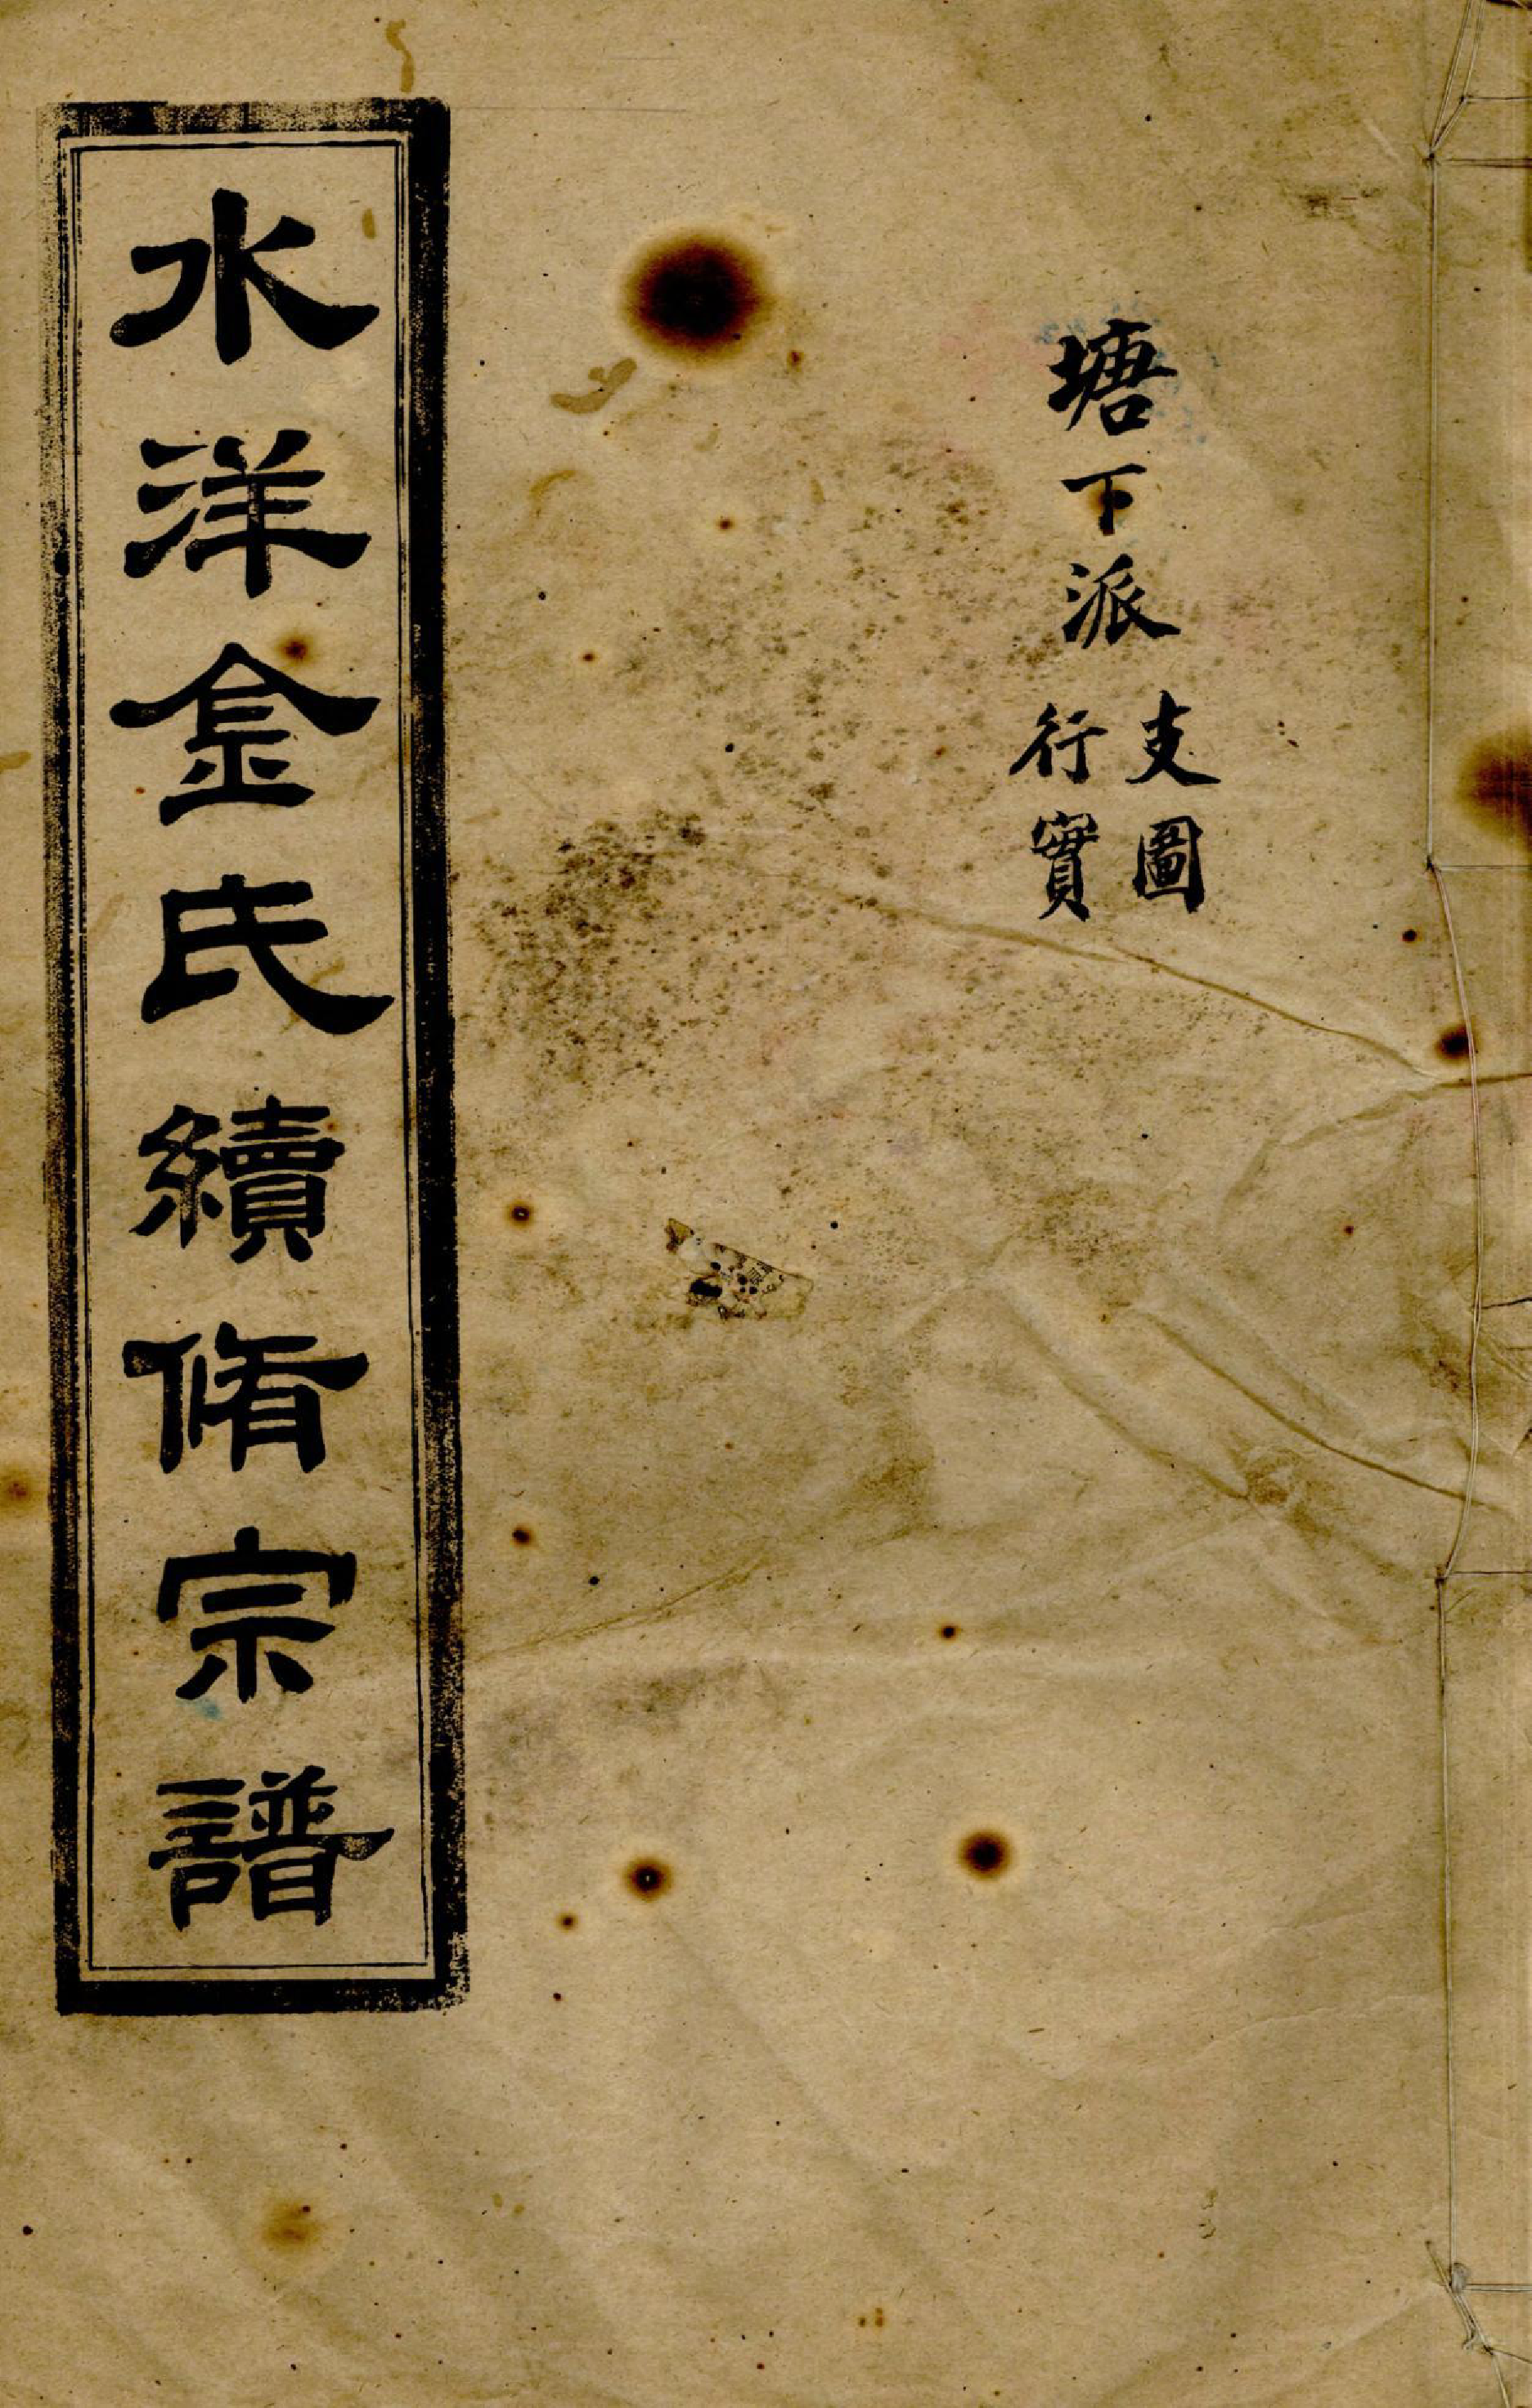 塘下派
支圖
行實
水洋金氏續脩宗譜